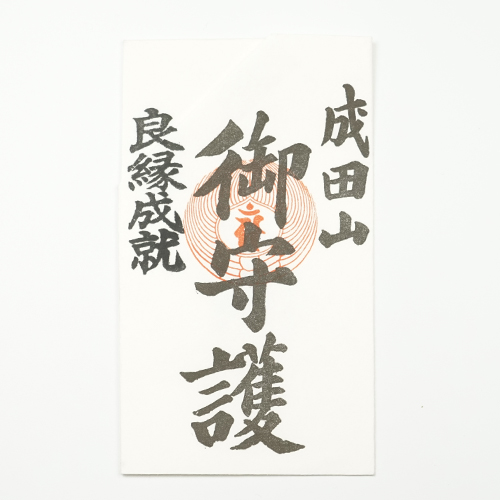 成田山
御守護
良縁成就